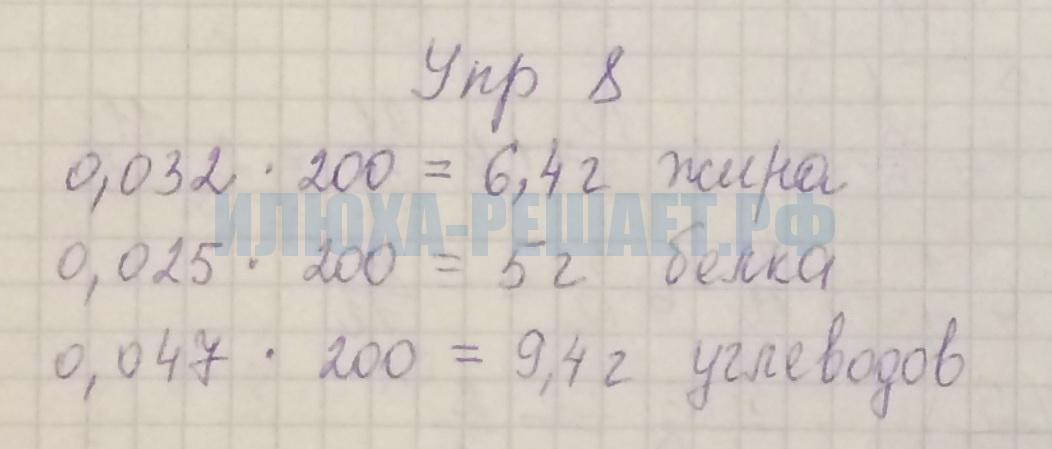 Упр 8
0,032 · 200 = 6,4 г жира
ИЛЮХА-РЕШАЕТ.РФ
0,025 · 200 = 5 г белка
0,047 · 200 = 9,4 г углеводов